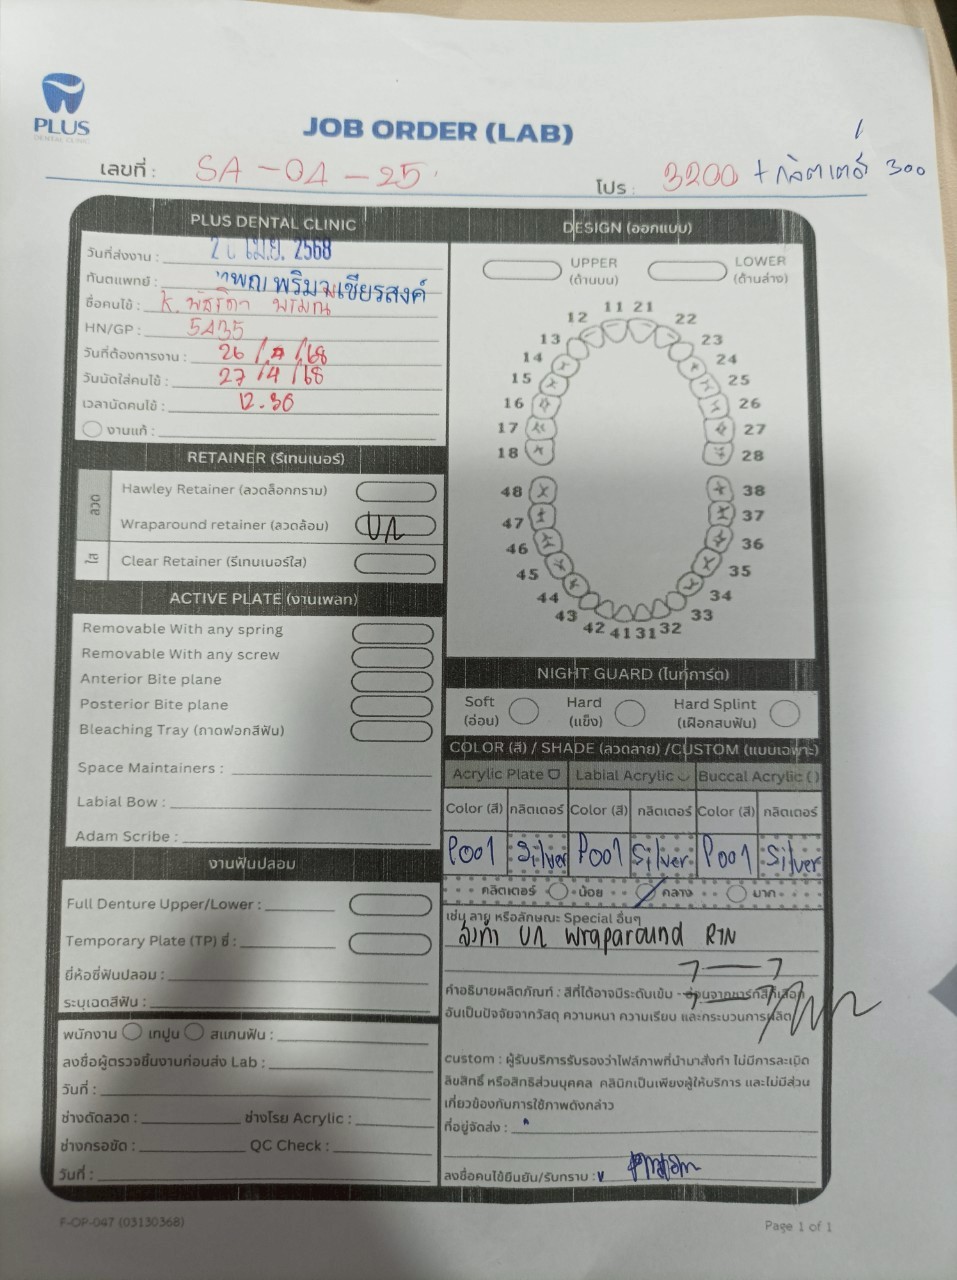 PLUS
DENTAL CLINIC
JOB ORDER (LAB)
เลขที่ : SA-04-25
โปร : 3200 + กลิตเตอร์ 300
PLUS DENTAL CLINIC
วันที่ส่งงาน : เม.ย. 2568
ทันตแพทย์ : พริมา เชียรสงค์
ชื่อคนไข้ : K.
HN/GP : 5435
วันที่ต้องการงาน : 26/4/68
วันนัดใส่คนไข้ : 27/4/68
เวลานัดคนไข้ : 12.30
งานแก้ :
RETAINER (รีเทนเนอร์)
ลวด
Hawley Retainer (ลวดล็อกกราม)
Wraparound retainer (ลวดล้อม) บน
ใส
Clear Retainer (รีเทนเนอร์ใส)
ACTIVE PLATE (งานเพลท)
Removable With any spring
Removable With any screw
Anterior Bite plane
Posterior Bite plane
Bleaching Tray (ถาดฟอกสีฟัน)
Space Maintainers :
Labial Bow :
Adam Scribe :
งานฟันปลอม
Full Denture Upper/Lower :
Temporary Plate (TP) ซี่ :
ยี่ห้อซี่ฟันปลอม :
ระบุเฉดสีฟัน :
พนักงาน เทปูน สแกนฟัน :
ลงชื่อผู้ตรวจชิ้นงานก่อนส่ง Lab :
วันที่ :
ช่างดัดลวด : ช่างโรย Acrylic :
ช่างกรอขัด : QC Check :
วันที่ :
DESIGN (ออกแบบ)
UPPER (ด้านบน) LOWER (ด้านล่าง)
11 21
12 22
13 23
14 24
15 25
16 26
17 27
18 28
48 38
47 37
46 36
45 35
44 34
43 33
42 41 31 32
NIGHT GUARD (ไนท์การ์ด)
Soft (อ่อน) Hard (แข็ง) Hard Splint (เฝือกสบฟัน)
COLOR (สี) / SHADE (ลวดลาย) /CUSTOM (แบบเฉพาะ)
Acrylic Plate Labial Acrylic Buccal Acrylic ( )
Color (สี) กลิตเตอร์ Color (สี) กลิตเตอร์ Color (สี) กลิตเตอร์
P001 Silver P001 Silver P001 Silver
กลิตเตอร์ น้อย กลาง มาก
เช่น ลาย หรือลักษณะ Special อื่นๆ
สั่งทำ บน wraparound RTN
7 — 7
คำอธิบายผลิตภัณฑ์ : สีที่ได้อาจมีระดับเข้ม - อ่อนจากชาร์ทสีที่เลือก
อันเป็นปัจจัยจากวัสดุ ความหนา ความเรียบ และกระบวนการผลิต
custom : ผู้รับบริการรับรองว่าไฟล์ภาพที่นำมาสั่งทำ ไม่มีการละเมิด
ลิขสิทธิ์ หรือสิทธิส่วนบุคคล คลินิกเป็นเพียงผู้ให้บริการ และไม่มีส่วน
เกี่ยวข้องกับการใช้ภาพดังกล่าว
ที่อยู่จัดส่ง :
ลงชื่อคนไข้ยืนยัน/รับทราบ :
F-OP-047 (03130368)
Page 1 of 1